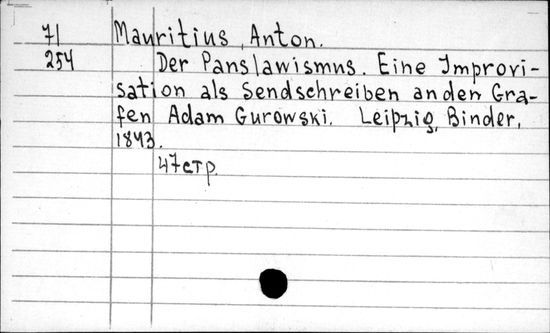 71 Mauritius, Anton.
254 Der Panslawismus. Eine Improvi-
sation als Sendschreiben an den Gra-
fen Adam Gurowski. Leipzig, Binder,
1843.
47 стр.